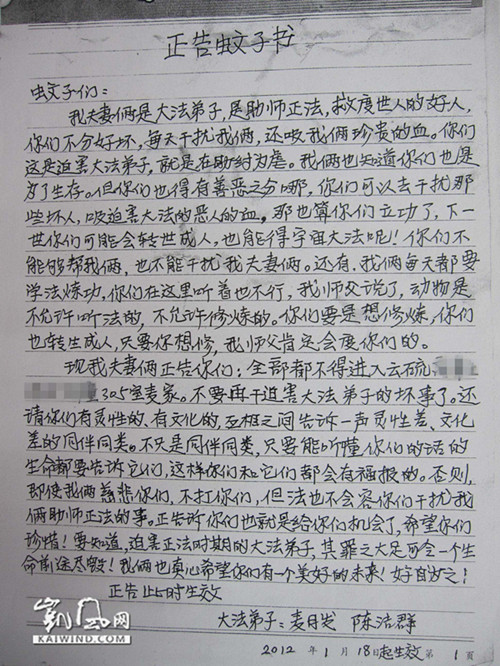 正告蚊子书
蚊子们:
我夫妻俩是大法弟子,是助师正法,救度世人的好人,
你们不分好坏,每天干扰我俩,还吸我俩珍贵的血。你们
这是迫害大法弟子,就是在助纣为虐。我俩也知道你们也是
为了生存。但你们也得有善恶之分哪,你们可以去干扰那
些坏人,吸迫害大法的恶人的血。那也算你们立功了,下一
世你们可能会转世成人,也能得宇宙大法呢!你们不
能够帮我俩,也不能干扰我夫妻俩。还有,我俩每天都要
学法炼功,你们在这里听着也不行,我师父说了,动物是
不允许听法的,不允许修炼的。你们要是想修炼,你们
也转生成人,只要你想修,我师父肯定会度你们的。
现我夫妻俩正告你们:全部都不得进入云硫
305室麦家。不要再干迫害大法弟子的坏事了。还
请你们有灵性的、有文化的,互相之间告诉一声灵性差、文化
差的同伴同类。不只是同伴同类,只要能听懂你们的话的
生命都要告诉它们,这样你们和它们都会有福报的。否则,
即使我俩慈悲你们,不打你们,但法也不会容你们干扰我
俩助师正法的事。正告诉你们也就是给你们机会了,希望你们
珍惜!要知道,迫害正法时期的大法弟子,其罪之大足可令一个生
命前途尽毁!我俩也真心希望你们有一个美好的未来!好自为之!
正告即时生效
大法弟子:麦日发 陈洁群
2012年1月18日起生效 第1頁
凯风网
KAIWIND.COM